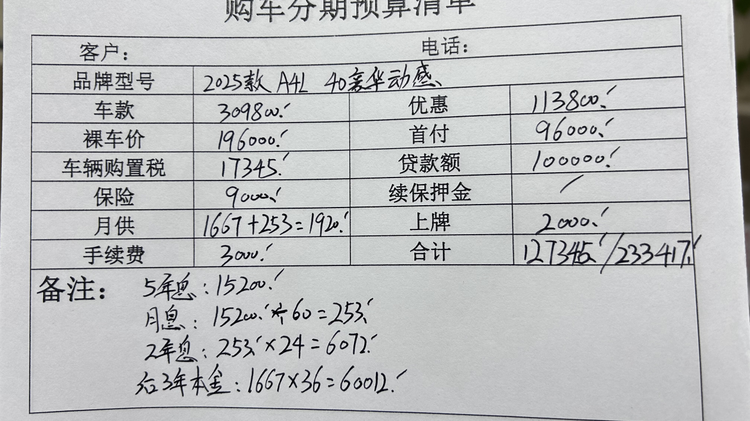 购车分期预算清单
客户： 电话：
品牌型号 2025款 A4L 40豪华动感
车款 309800 优惠 113800
裸车价 196000 首付 96000
车辆购置税 17345 贷款额 100000
保险 9000 续保押金 /
月供 1667+253=1920 上牌 2000
手续费 3000 合计 127345/233417
备注： 5年息：15200
月息：15200÷60=253
2年息：253×24=6072
后3年本金：1667×36=60012